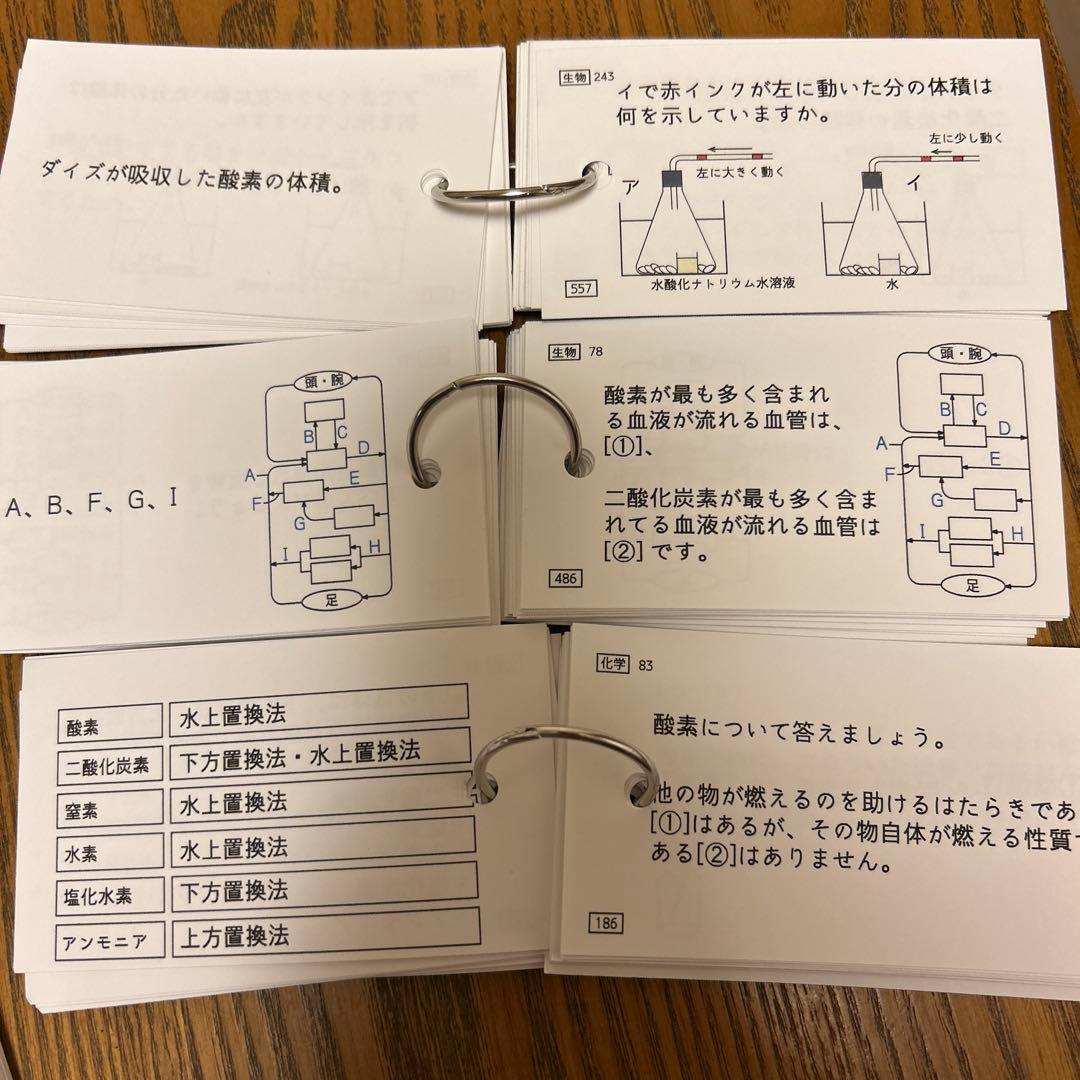 ダイズが吸収した酸素の体積。
生物 243
イで赤インクが左に動いた分の体積は
何を示していますか。
左に少し動く
左に大きく動く
ア
イ
水酸化ナトリウム水溶液
水
557
A、B、F、G、I
頭・腕
B
C
D
A
E
F
G
I
H
足
生物 78
酸素が最も多く含まれ
る血液が流れる血管は、
[①]、
二酸化炭素が最も多く含ま
れてる血液が流れる血管は
[②]です。
486
頭・腕
B
C
D
A
E
F
G
I
H
足
酸素 水上置換法
二酸化炭素 下方置換法・水上置換法
窒素 水上置換法
水素 水上置換法
塩化水素 下方置換法
アンモニア 上方置換法
化学 83
酸素について答えましょう。
他の物が燃えるのを助けるはたらきであ
[①]はあるが、その物自体が燃える性質
ある[②]はありません。
186